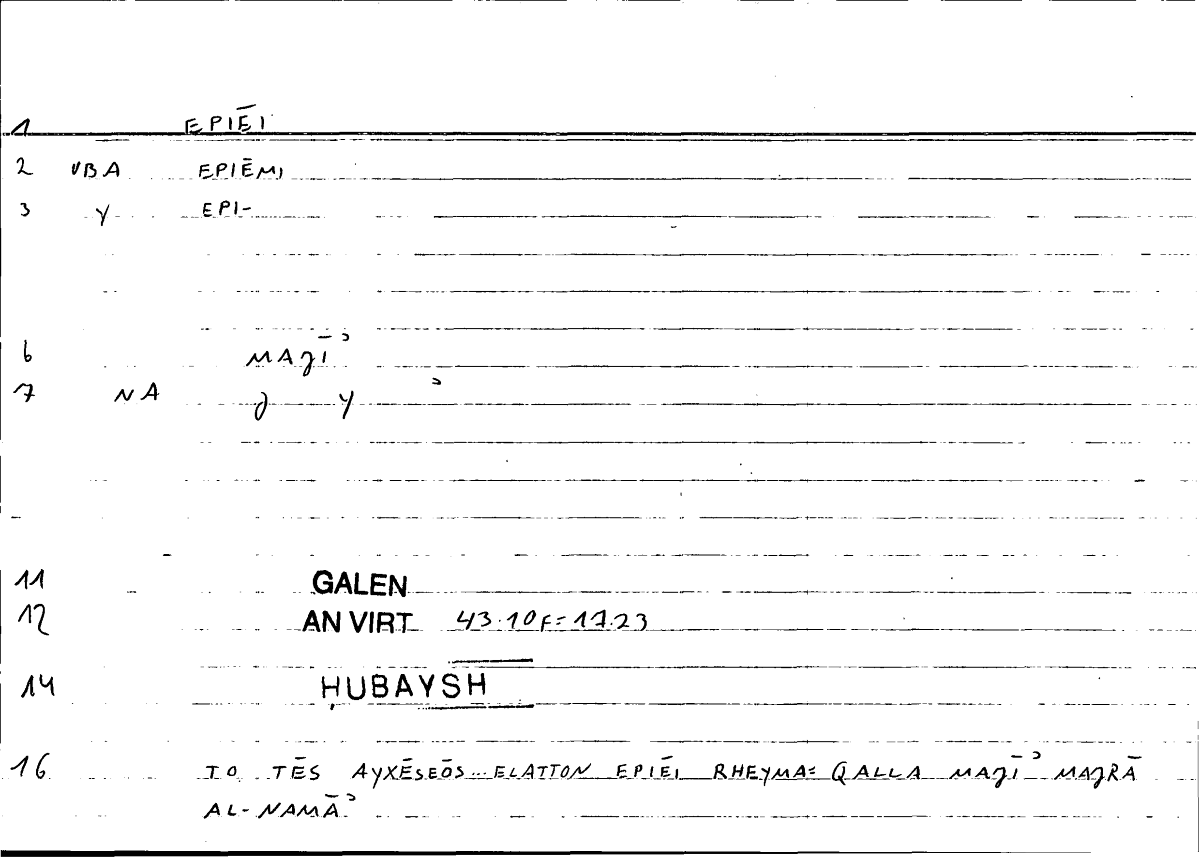 1 EPIĒI
2 VBA EPIĒMI
3 Y EPI-
6 MAJĪʾ
7 NA J Y ʾ
11 GALEN
12 AN VIRT 43.10F=17.23
14 ḤUBAYSH
16 TO TĒS AYXĒSEŌS... ELATTON EPIĒI RHEYMA= QALLA MAJĪʾ MAJRĀ
AL-NAMĀʾ